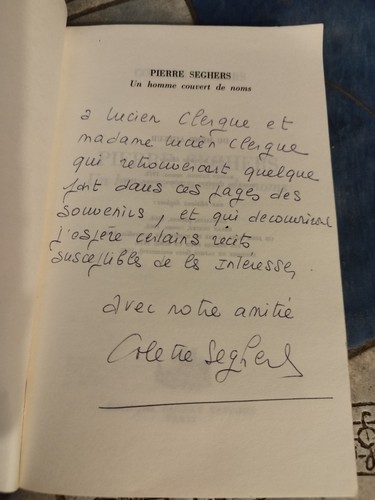 PIERRE SEGHERS
Un homme couvert de noms
à Lucien Clergue et
madame Lucien Clergue
qui retrouveront quelque
part dans ces pages des
souvenirs, et qui decouvriront
j'espère certains récits
susceptibles de les intéresser,
avec notre amitié
Colette Seghers